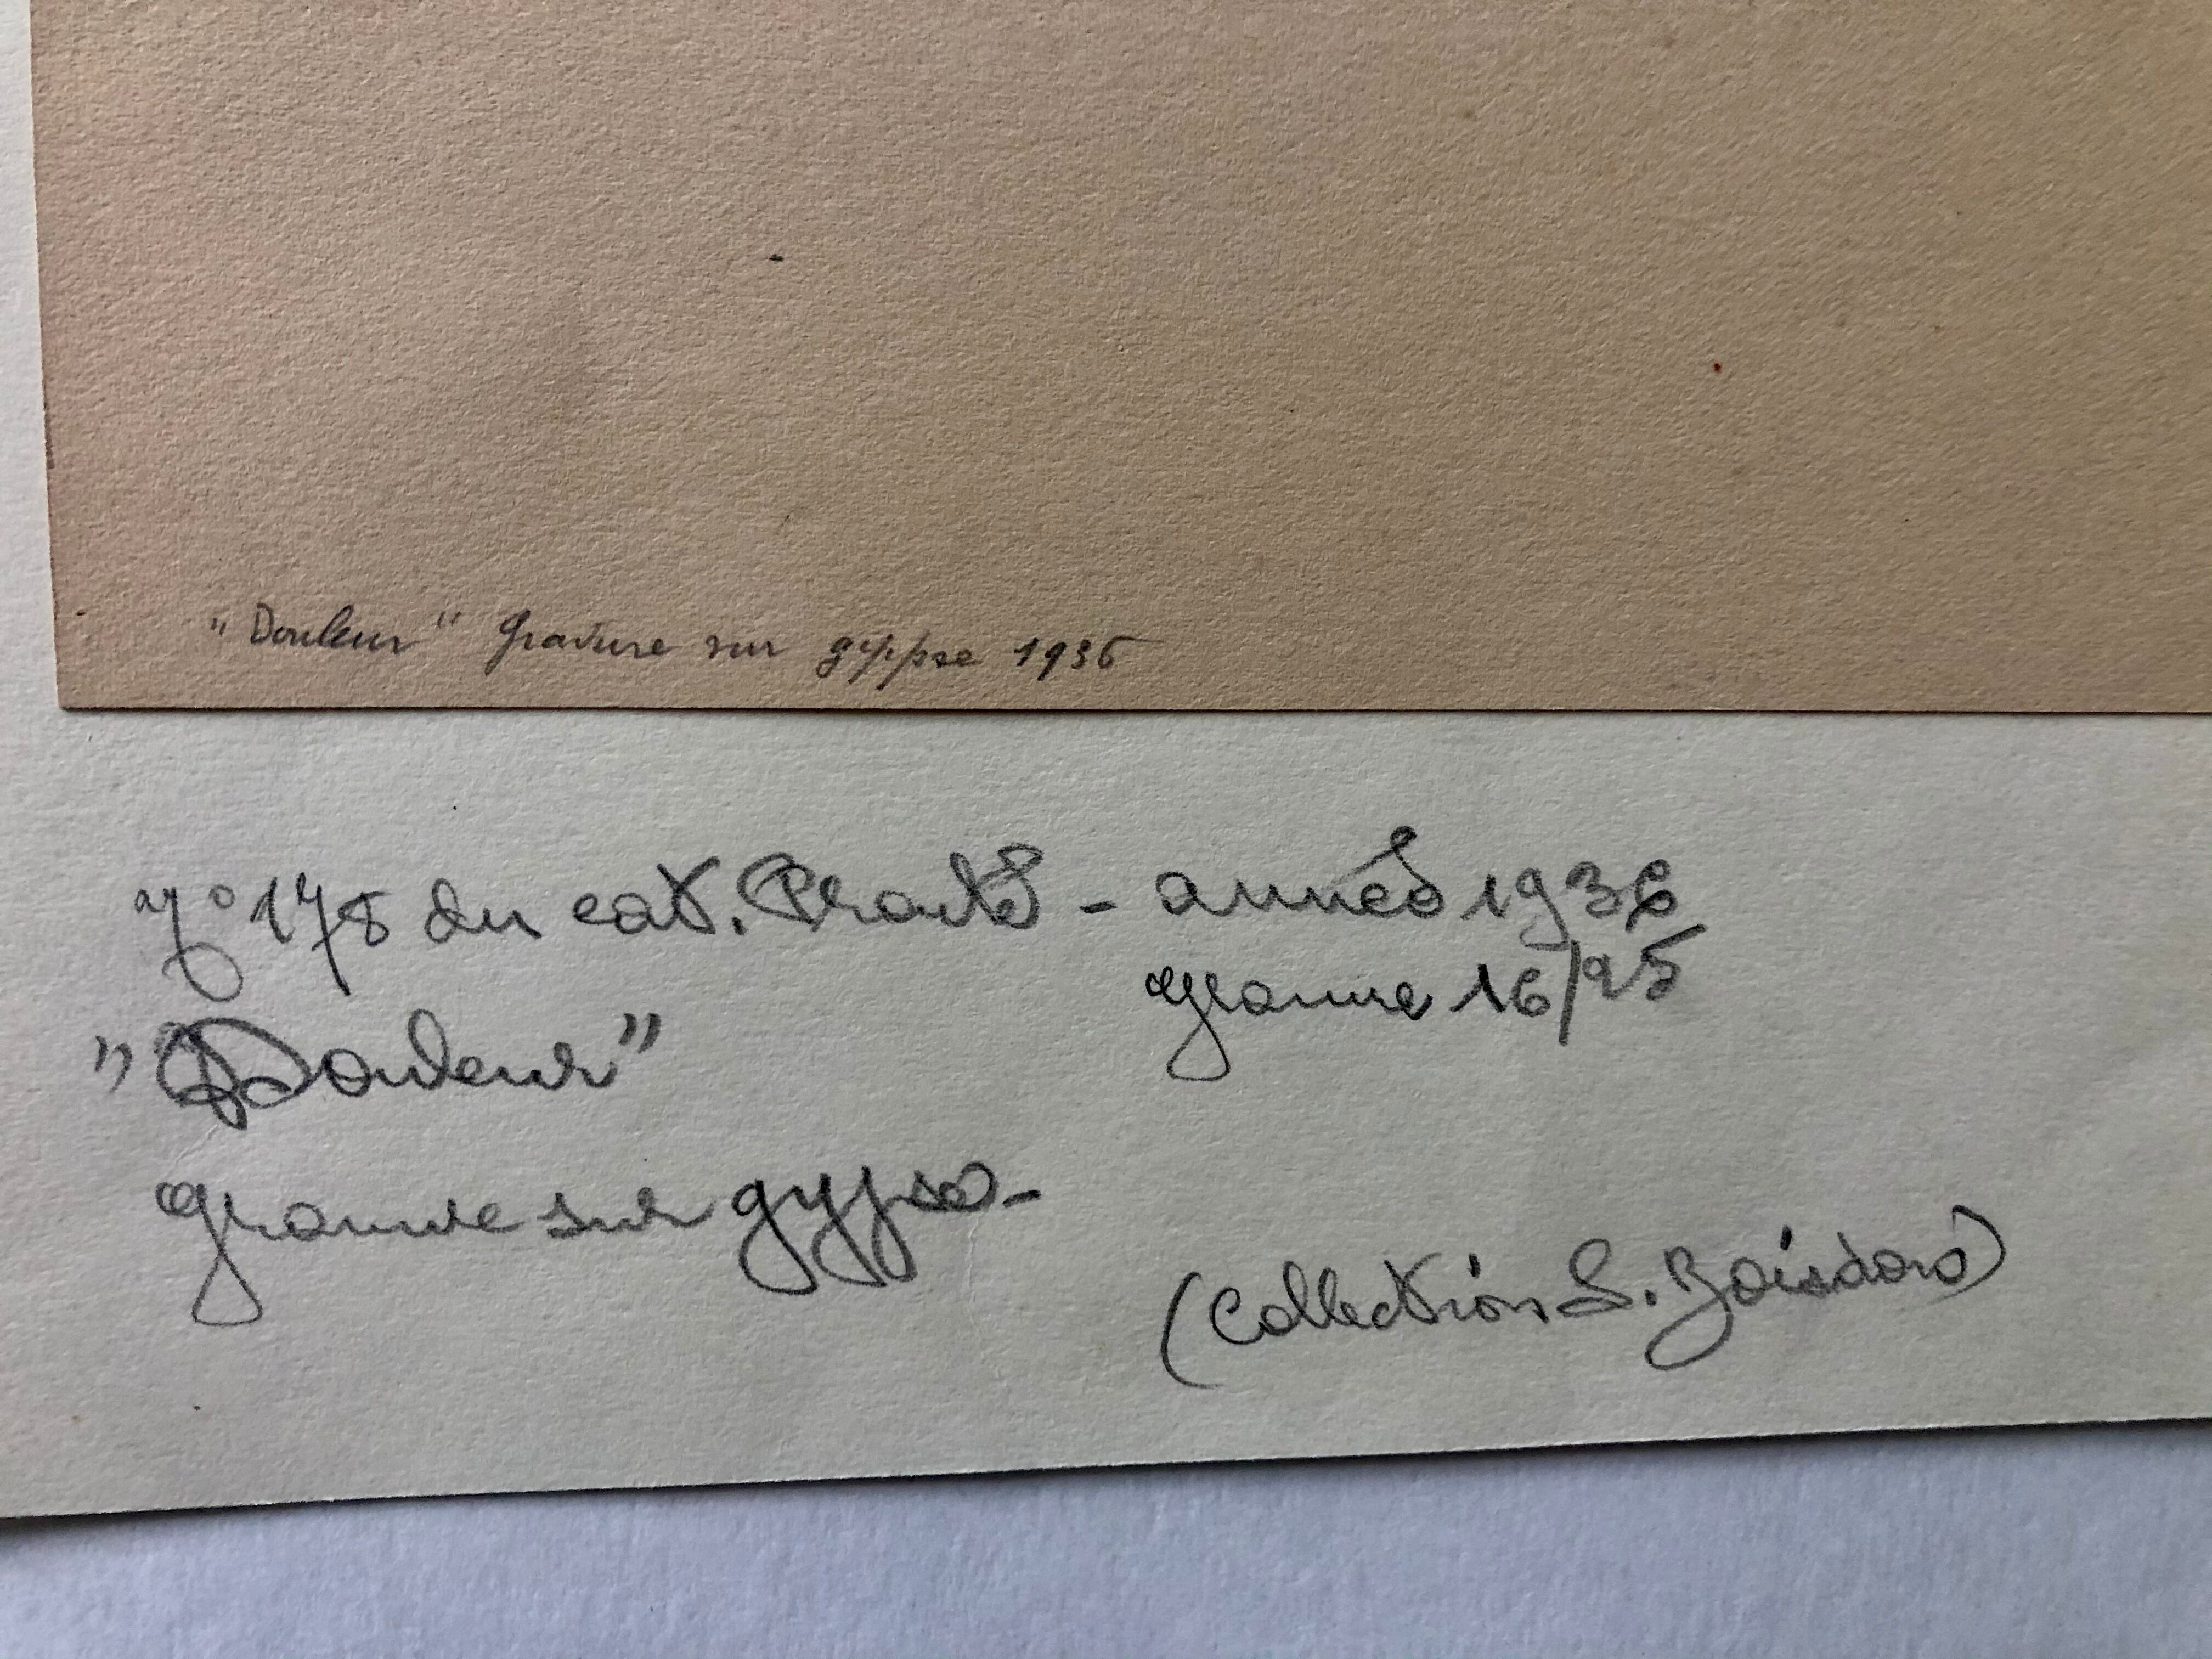 "Douleur" Gravure sur gypse 1936
N° 178 du cat. Prouté - année 1936
gravure 16/25
"Douleur"
gravure sur gypse -
(Collection S.